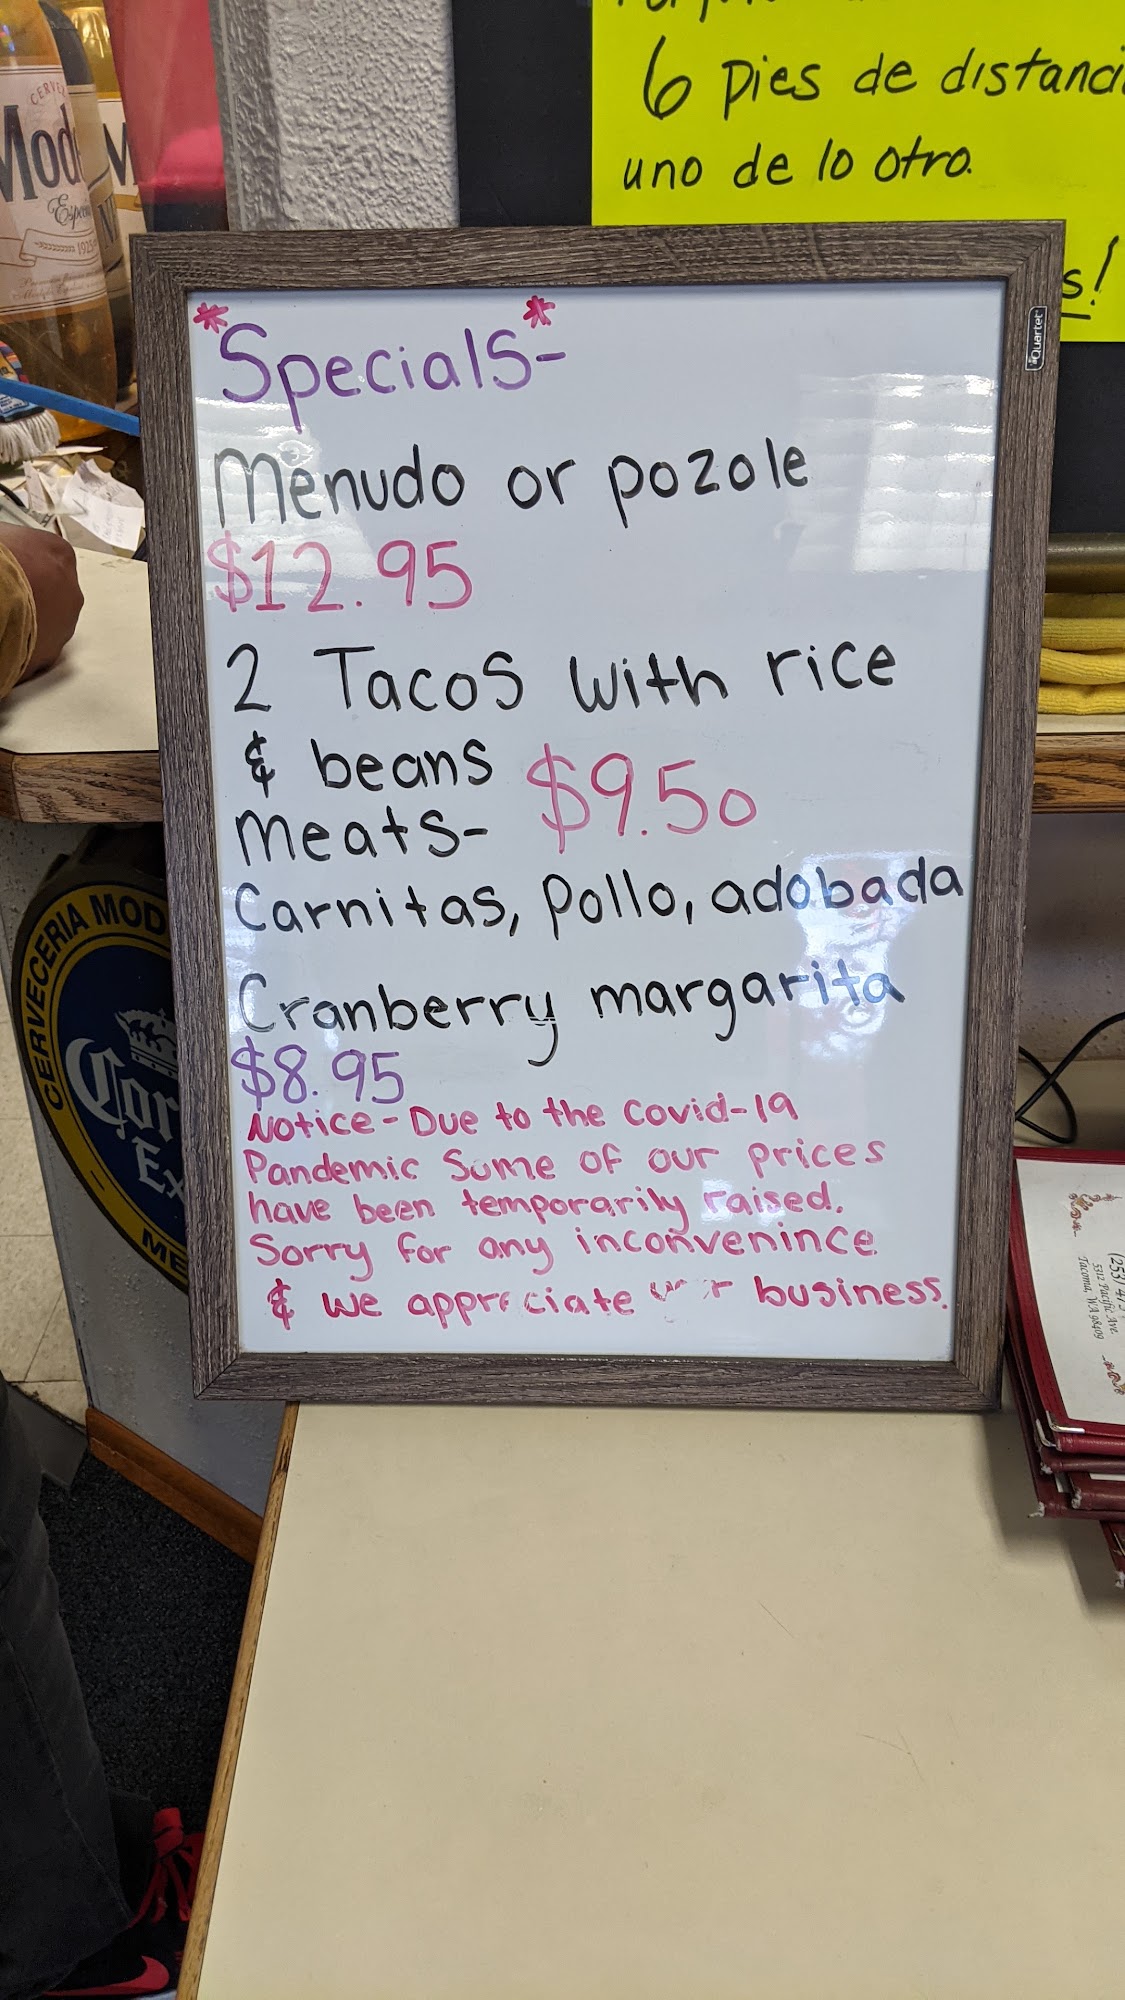 6 pies de distanci
uno de lo otro.
s!
Quartet
*Specials-*
Menudo or pozole
$12.95
2 Tacos with rice
& beans $9.50
Meats-
Carnitas, pollo, adobada
Cranberry margarita
$8.95
Notice- Due to the Covid-19
Pandemic Some of our prices
have been temporarily raised.
Sorry for any inconvenince
& we appreciate your business.
CERVE
Mod
Espec
1925
CERVECERIA MOD
Cor
Ex
ME
(253) 47
5312 Pacific Ave.
Tacoma, WA 98409